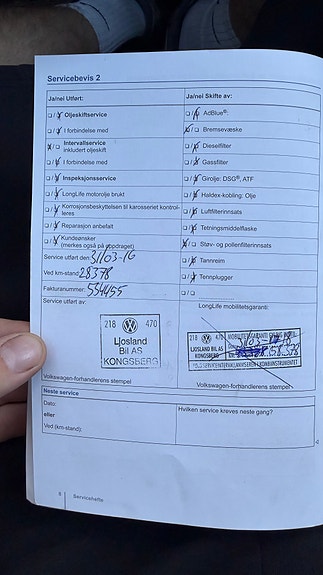 Servicebevis 2
Ja/nei Utført:
Oljeskiftservice
I forbindelse med
Intervallservice
inkludert oljeskift
I forbindelse med
Inspeksjonsservice
LongLife motorolje brukt
Korrosjonsbeskyttelsen til karosseriet kontrol-
leres
Reparasjon anbefalt
Kundeønsker
(merkes også på oppdraget)
Service utført den: 31/03-16
Ved km-stand: 28378
Fakturanummer: 554455
Service utført av:
218 470
Ljosland
Bil AS
KONGSBERG
Volkswagen-forhandlerens stempel
Ja/nei Skifte av:
AdBlue®:
Bremsevæske
Dieselfilter
Gassfilter
Girolje: DSG®, ATF
Haldex-kobling: Olje
Luftfilterinnsats
Tetningsmiddelflaske
Støv- og pollenfilterinnsats
Tannreim
Tennplugger
LongLife mobilitetsgaranti:
218 470
Ljosland
Bil AS
KONGSBERG
Volkswagen-forhandlerens stempel
Neste service
Dato:
eller
Ved (km-stand):
Hvilken service kreves neste gang?
8 Servicehefte